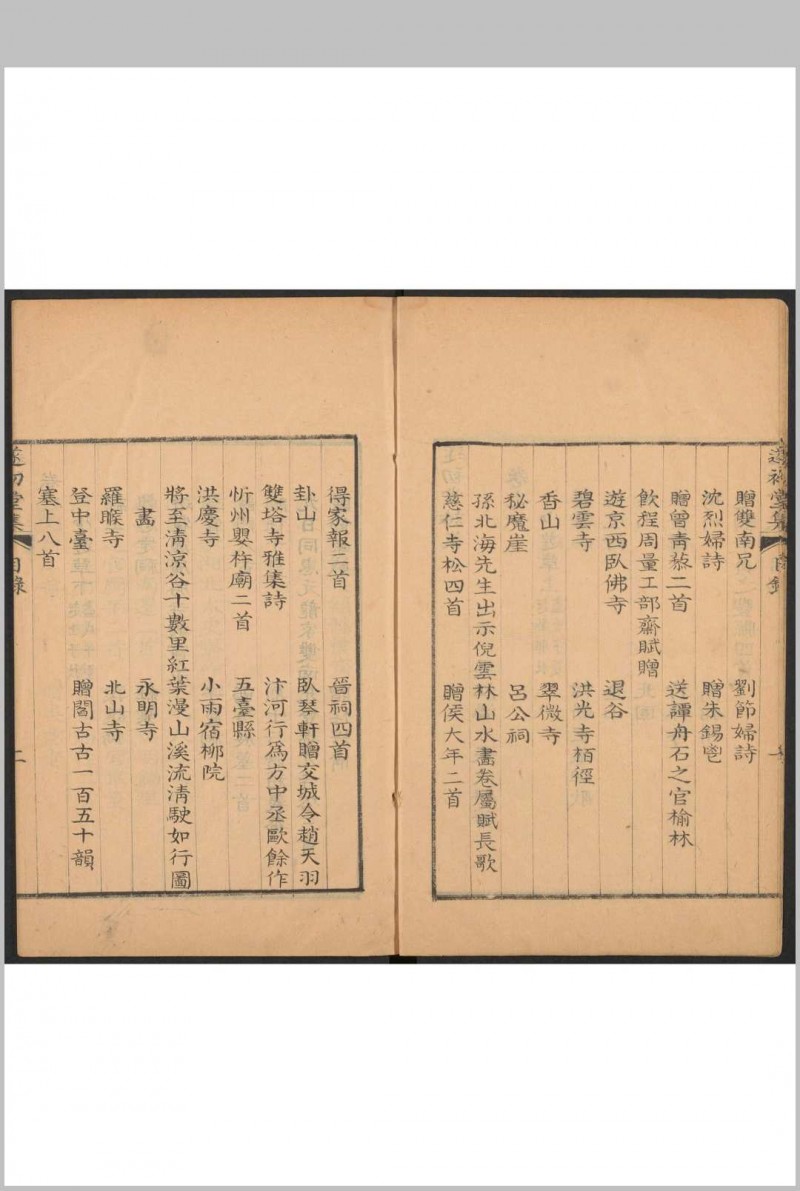 贈雙南兄　劉節婦詩
沈烈婦詩　贈朱錫鬯
贈曾青藜二首　送譚舟石之官榆林
飲程周量工部齋賦贈
遊京西臥佛寺　退谷
碧雲寺　洪光寺栢徑
香山　翠微寺
秘魔崖　呂公祠
孫北海先生出示倪雲林山水畫卷屬賦長歌
慈仁寺松四首　贈侯大年二首
得家報二首　晉祠四首
卦山　臥琴軒贈交城令趙天羽
雙塔寺雅集詩　汴河行爲方中丞歐餘作
忻州嬰杵廟二首　五臺縣
洪慶寺　小雨宿柳院
將至清涼谷十數里紅葉漫山溪流淸駛如行圖
畵　永明寺
羅睺寺　北山寺
登中臺　贈閻古古一百五十韻
塞上八首
遂初堂集　目錄　二